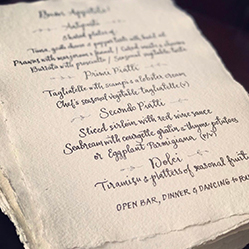 Buon Appetito!
Antipasti
Shared platters of
Tuna, goats cheese & pepper tarts with basil oil
Prawns with mayonnaise & lemon / Salad
Burrata with prosciutto / Seasonal vegetable tarts
Primi Piatti
Tagliatelle with scampi & a lobster cream
Chef's seasonal vegetable tagliatelle (v)
Secondo Piatti
Sliced sirloin with red wine sauce
Seabream with courgette gratin & thyme potatoes
or Eggplant Parmigiana (v)
Dolci
Tiramisu & platters of seasonal fruit
OPEN BAR, DINNER & DANCING to